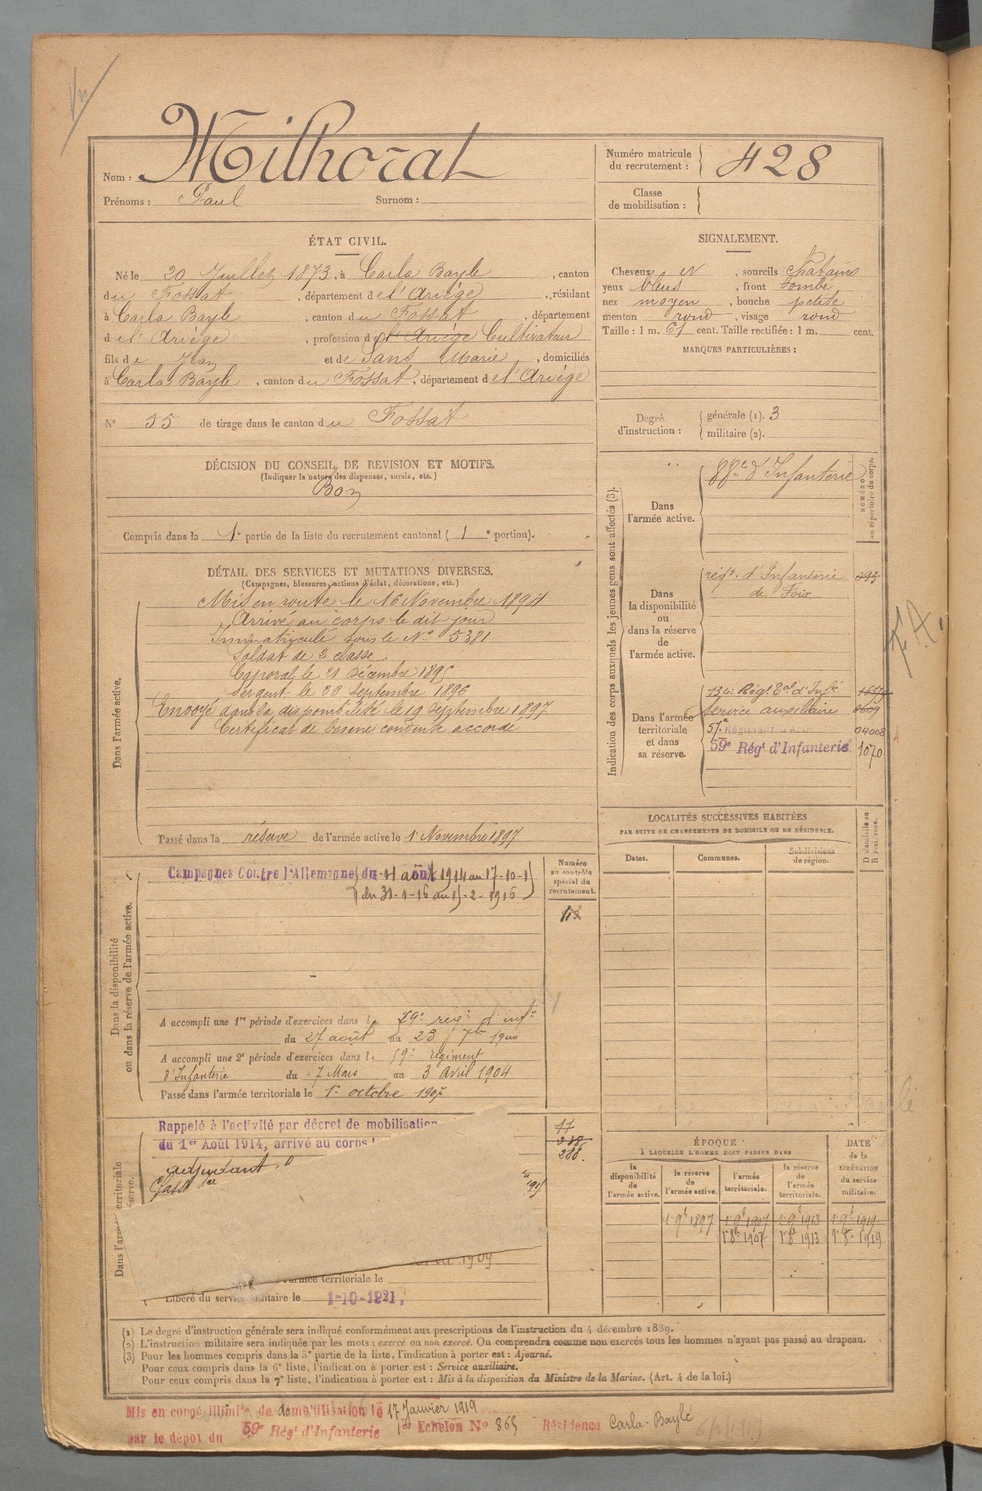 Vu
Nom : Milhorat
Prénoms : Paul Surnom :
Numéro matricule du recrutement : 428
Classe de mobilisation :
ÉTAT CIVIL.
Né le 20 Juillet 1873, à Carla Bayle, canton
du Fossat, département de l'Ariège, résidant
à Carla Bayle, canton du Fossat, département
de l'Ariège, profession de l'Ariège Cultivateur
fils de Jean et de Sans Marie, domiciliés
à Carla Bayle, canton du Fossat, département de l'Ariège
N° 55 de tirage dans le canton du Fossat
SIGNALEMENT.
Cheveux et, sourcils chatains
yeux bleus, front bombé
nez moyen, bouche petite
menton rond, visage rond
Taille : 1 m. 61 cent. Taille rectifiée : 1 m. cent.
MARQUES PARTICULIÈRES :
Degré d'instruction : générale (1). 3
militaire (2).
DÉCISION DU CONSEIL DE REVISION ET MOTIFS.
(Indiquer la nature des dispenses, sursis, etc.)
Bon
Compris dans la 1e partie de la liste du recrutement cantonal ( 1 e portion).
DÉTAIL DES SERVICES ET MUTATIONS DIVERSES.
(Campagnes, blessures, actions d'éclat, décorations, etc.)
Dans l'armée active.
Mis en route le 16 Novembre 1894
Arrivé au corps le dit jour
Immatriculé sous le N° 5381
Soldat de 2 classe
Caporal le 21 Décembre 1895
Sergent le 20 Septembre 1896
Envoyé dans la disponibilité le 19 Septembre 1897
Certificat de bonne conduite accordé
Passé dans la réserve de l'armée active le 1 Novembre 1897
Indication des corps auxquels les jeunes gens sont affectés (3).
NUMÉRO au répertoire du corps.
Dans l'armée active.
88e d'Infanterie
Dans la disponibilité ou dans la réserve de l'armée active.
régt. d'Infanterie
de Foix
093
Dans l'armée territoriale et dans sa réserve.
134e Régt Eal d'Infie
Service auxiliaire
57e
04008
59e Régt d'Infanterie 1070
LOCALITÉS SUCCESSIVES HABITÉES
PAR SUITE DE CHANGEMENTS DE DOMICILE OU DE RÉSIDENCE.
Dates. Communes. Subdivisions de région. D domicile ou R résidence.
Dans la disponibilité ou dans la réserve de l'armée active.
Numéro au contrôle spécial du recrutement.
Campagnes Contre l'Allemagne du 11 août 1914 au 17-10-1
(du 31-1-16 au 15-2-1916
A accompli une 1re période d'exercices dans le 59e regt d'infie
du 27 août au 23 7bre 1900
A accompli une 2e période d'exercices dans le 59e régiment
d'Infanterie du 7 Mars au 3 avril 1904
Passé dans l'armée territoriale le 1er octobre 1907
Rappelé à l'activité par décret de mobilisation
du 1er Août 1914, arrivé au corps
288.
adjudant
1909
l'armée territoriale le
Libéré du service militaire le 1-10-1921.
ÉPOQUE
À LAQUELLE L'HOMME DOIT PASSER DANS
DATE de la LIBÉRATION du service militaire.
la disponibilité de l'armée active. la réserve de l'armée active. l'armée territoriale. la réserve de l'armée territoriale.
1 9e 1897 1 9e 1907 1 9e 1913 1 9e 1919
1 8e 1907 1 8e 1913 1 8e 1919
(1) Le degré d'instruction générale sera indiqué conformément aux prescriptions de l'instruction du 4 décembre 1889.
(2) L'instruction militaire sera indiquée par les mots : exercé ou non exercé. On comprendra comme non exercés tous les hommes n'ayant pas passé au drapeau.
(3) Pour les hommes compris dans la 5e partie de la liste, l'indication à porter est : Ajourné.
Pour ceux compris dans la 6e liste, l'indication à porter est : Service auxiliaire.
Pour ceux compris dans la 7e liste, l'indication à porter est : Mis à la disposition du Ministre de la Marine. (Art. 4 de la loi.)
Mis en congé illimité de démobilisation le 17 Janvier 1919
1er Echelon N° 865 Résidence Carla-Bayle
par le dépôt du 59e Régt d'Infanterie